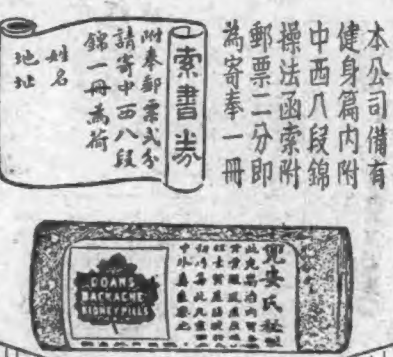 本公司備有
健身篇内附
中西八段錦
操法函索附
郵票二分即
為寄奉一冊
索書券
附奉郵票弍分
請寄中西八段
錦一冊為荷
姓名
地址
兜安氏秘製
DOANS
BACKACHE
KIDNEY PILLS